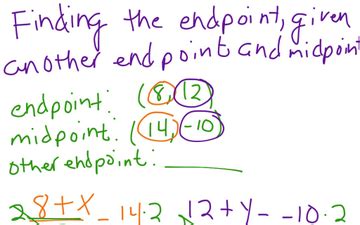 Finding the endpoint, given
another endpoint and midpoint
endpoint: (8, 12)
midpoint: (14, -10)
other endpoint: ________
2 8+x = 14·2 12+y = -10·2